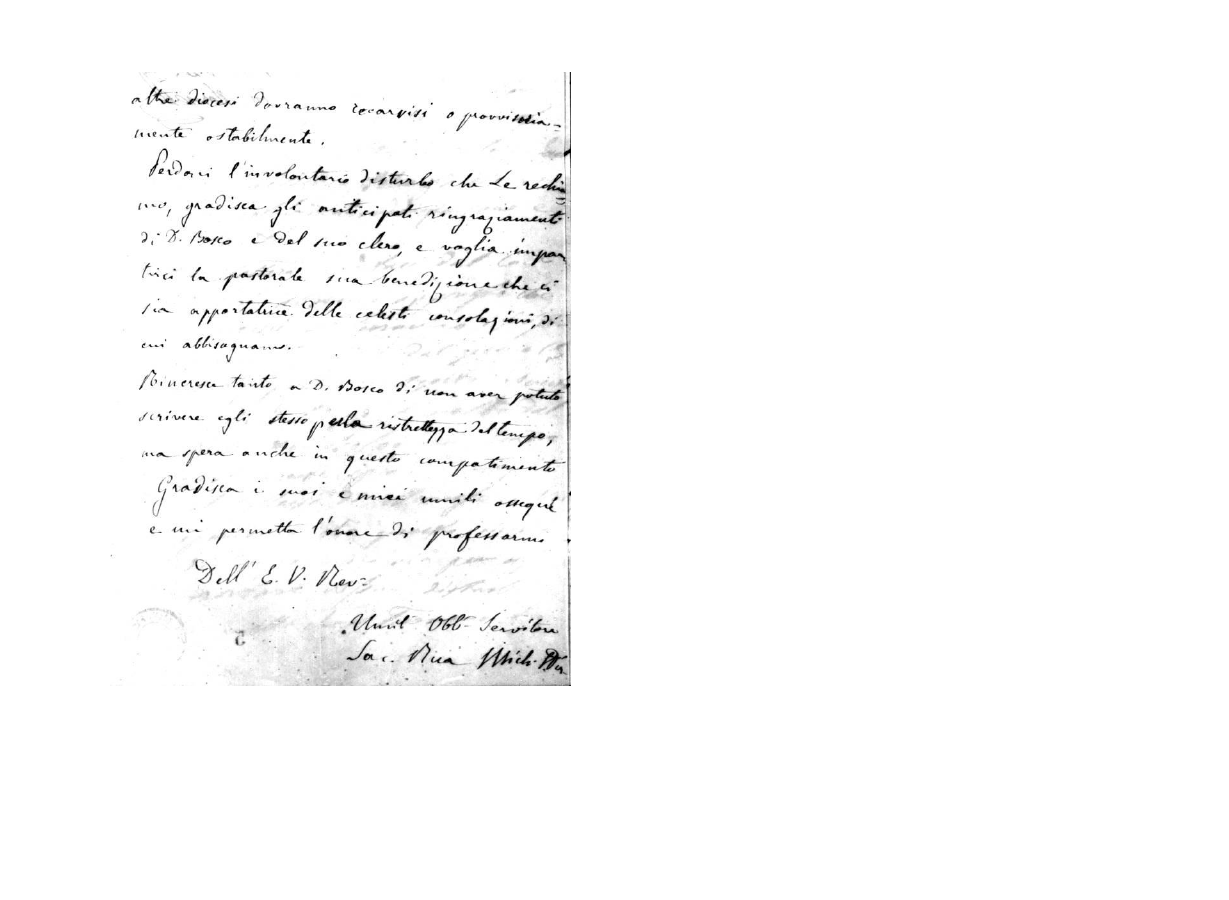 altre diocesi dovranno recarvisi o provvisoria-
mente o stabilmente.
Perdoni l'involontario disturbo che Le rechia=
mo, gradisca gli anticipati ringraziamenti
di D. Bosco e del suo clero, e voglia impar
tirci la pastorale sua benedizione che ci
sia apportatrice delle celesti consolazioni, di
cui abbisognamo.
Rincresce tanto a D. Bosco di non aver potuto
scrivere egli stesso per la ristrettezza del tempo,
ma spera anche in questo compatimento
Gradisca i suoi e miei umili ossequi
e mi permetta l'onore di professarmi
Dell' E. V. Rev=
Umil Obb- Servitore
Sac. Rua Mich.